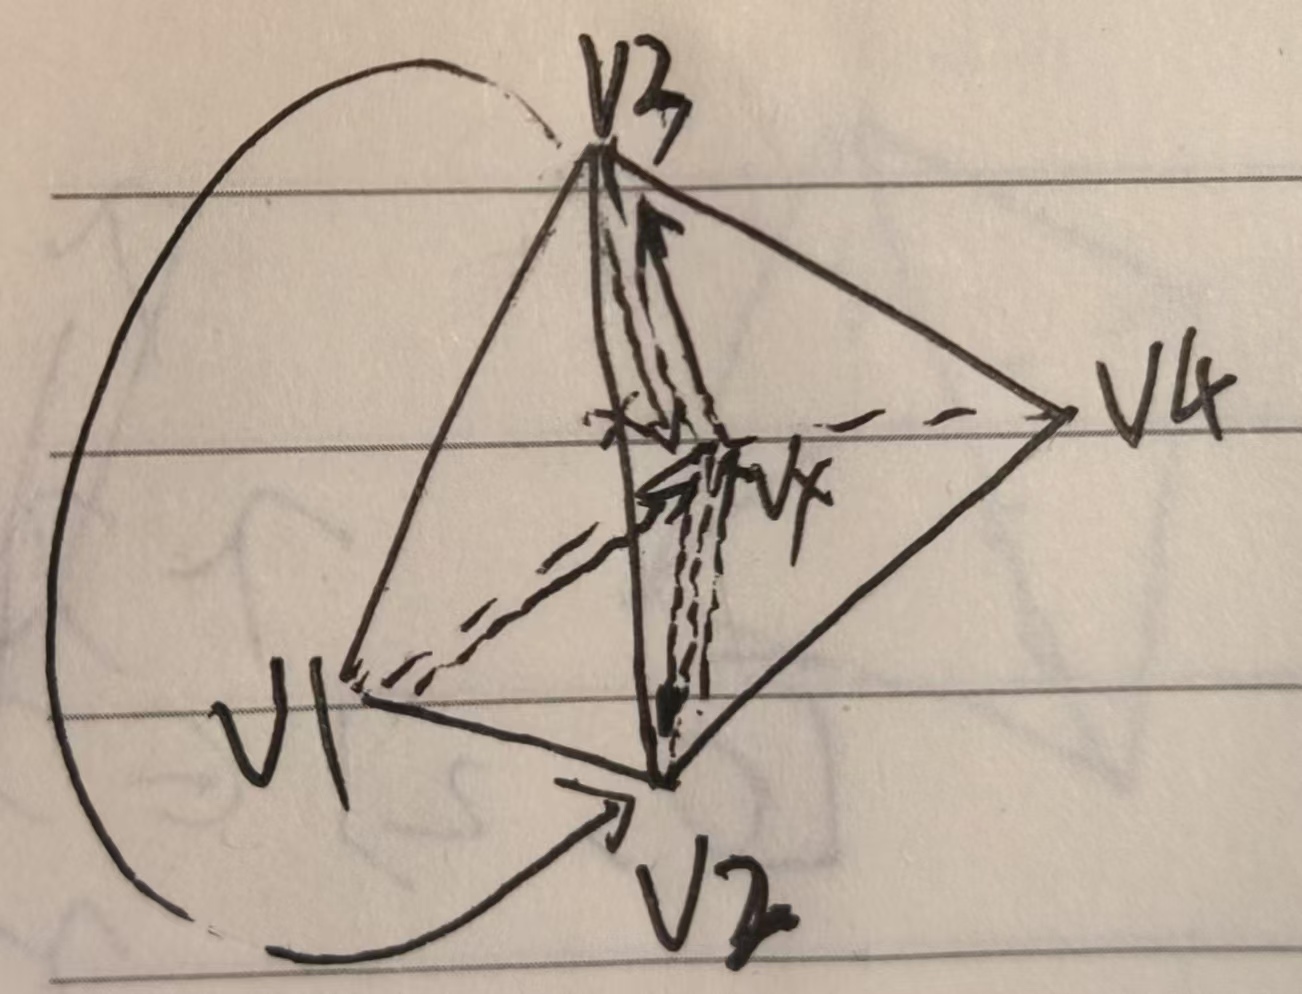 V3
V4
Vx
V1
V2